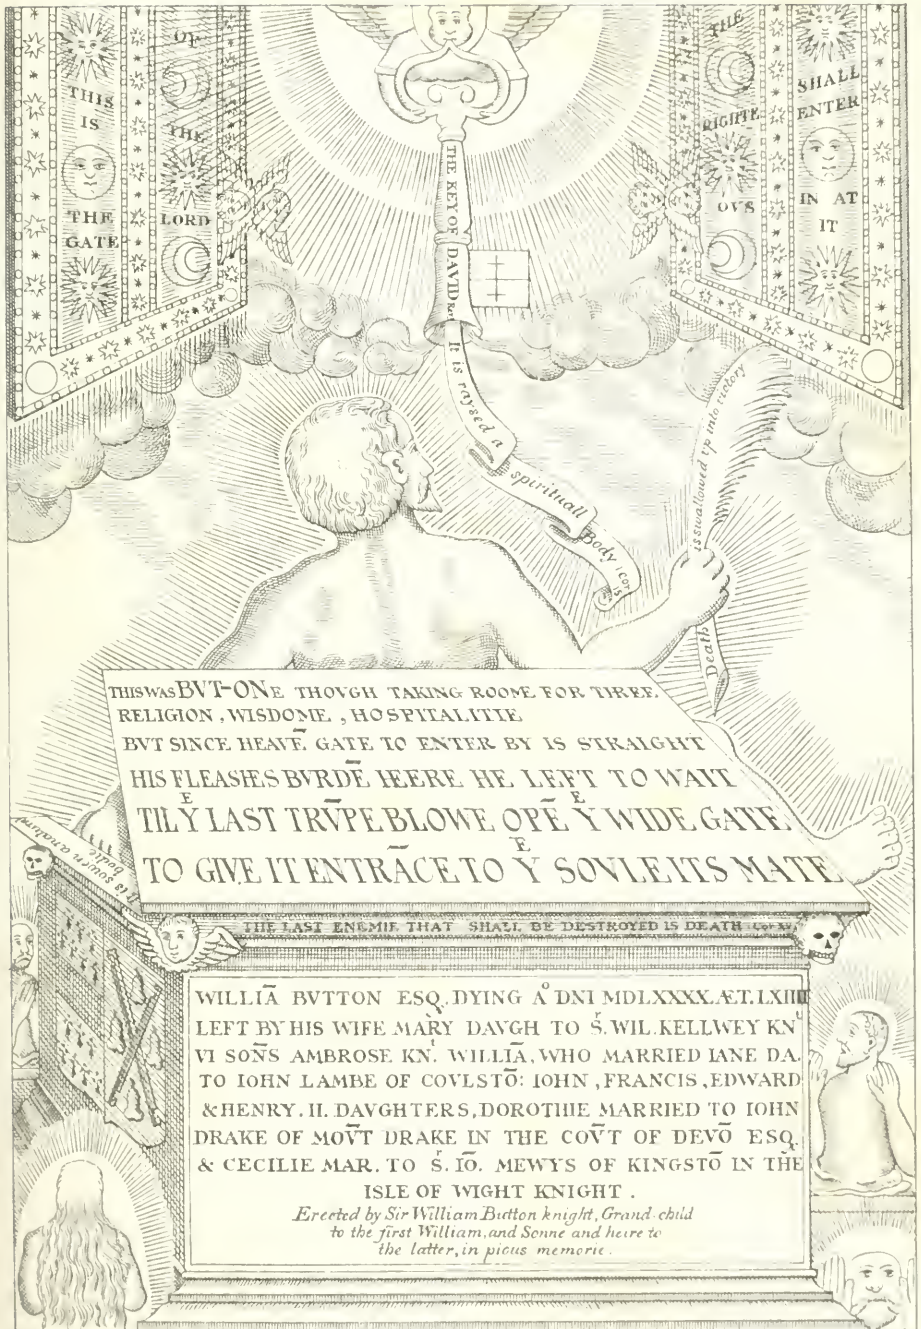 THIS
IS
THE
GATE
OF
THE
LORD
THE
RIGHTE
OVS
SHALL
ENTER
IN AT
IT
THE KEY OF DAVID Rev
It is raysed a
spirituall
Body 1 cor
15
Death
is swallowed vp into victory
THIS WAS BVT-ONE THOVGH TAKING ROOME FOR THREE.
RELIGION, WISDOME, HOSPITALITIE
BVT SINCE HEAVĒ GATE TO ENTER BY IS STRAIGHT
HIS FLEASHES BVRDĒ HEERE HE LEFT TO WAIT
TIL Yᴱ LAST TRV̄PE BLOWE OPĒ Yᴱ WIDE GATE
TO GIVE IT ENTRĀCE TO Yᴱ SOVLE ITS MATE
It is sowen a naturall
bodie
THE LAST ENEMIE THAT SHALL BE DESTROYED IS DEATH 1 Cor xv
WILLIĀ BVTTON ESQ. DYING Aº DNI MDLXXXX. ÆT. LXIIII
LEFT BY HIS WIFE MARY DAVGH TO Sʳ. WIL. KELLWEY KNᵗ
VI SOÑS AMBROSE KNᵗ. WILLIĀ, WHO MARRIED IANE DA.
TO IOHN LAMBE OF COVLSTŌ: IOHN, FRANCIS, EDWARD
& HENRY. II. DAVGHTERS, DOROTHIE MARRIED TO IOHN
DRAKE OF MOV̄T DRAKE IN THE COV̄T OF DEVŌ ESQ.
& CECILIE MAR. TO Sʳ. IŌ. MEWYS OF KINGSTŌ IN THE
ISLE OF WIGHT KNIGHT.
Erected by Sir William Button knight, Grand-child
to the first William, and Sonne and heire to
the latter, in pious memorie.